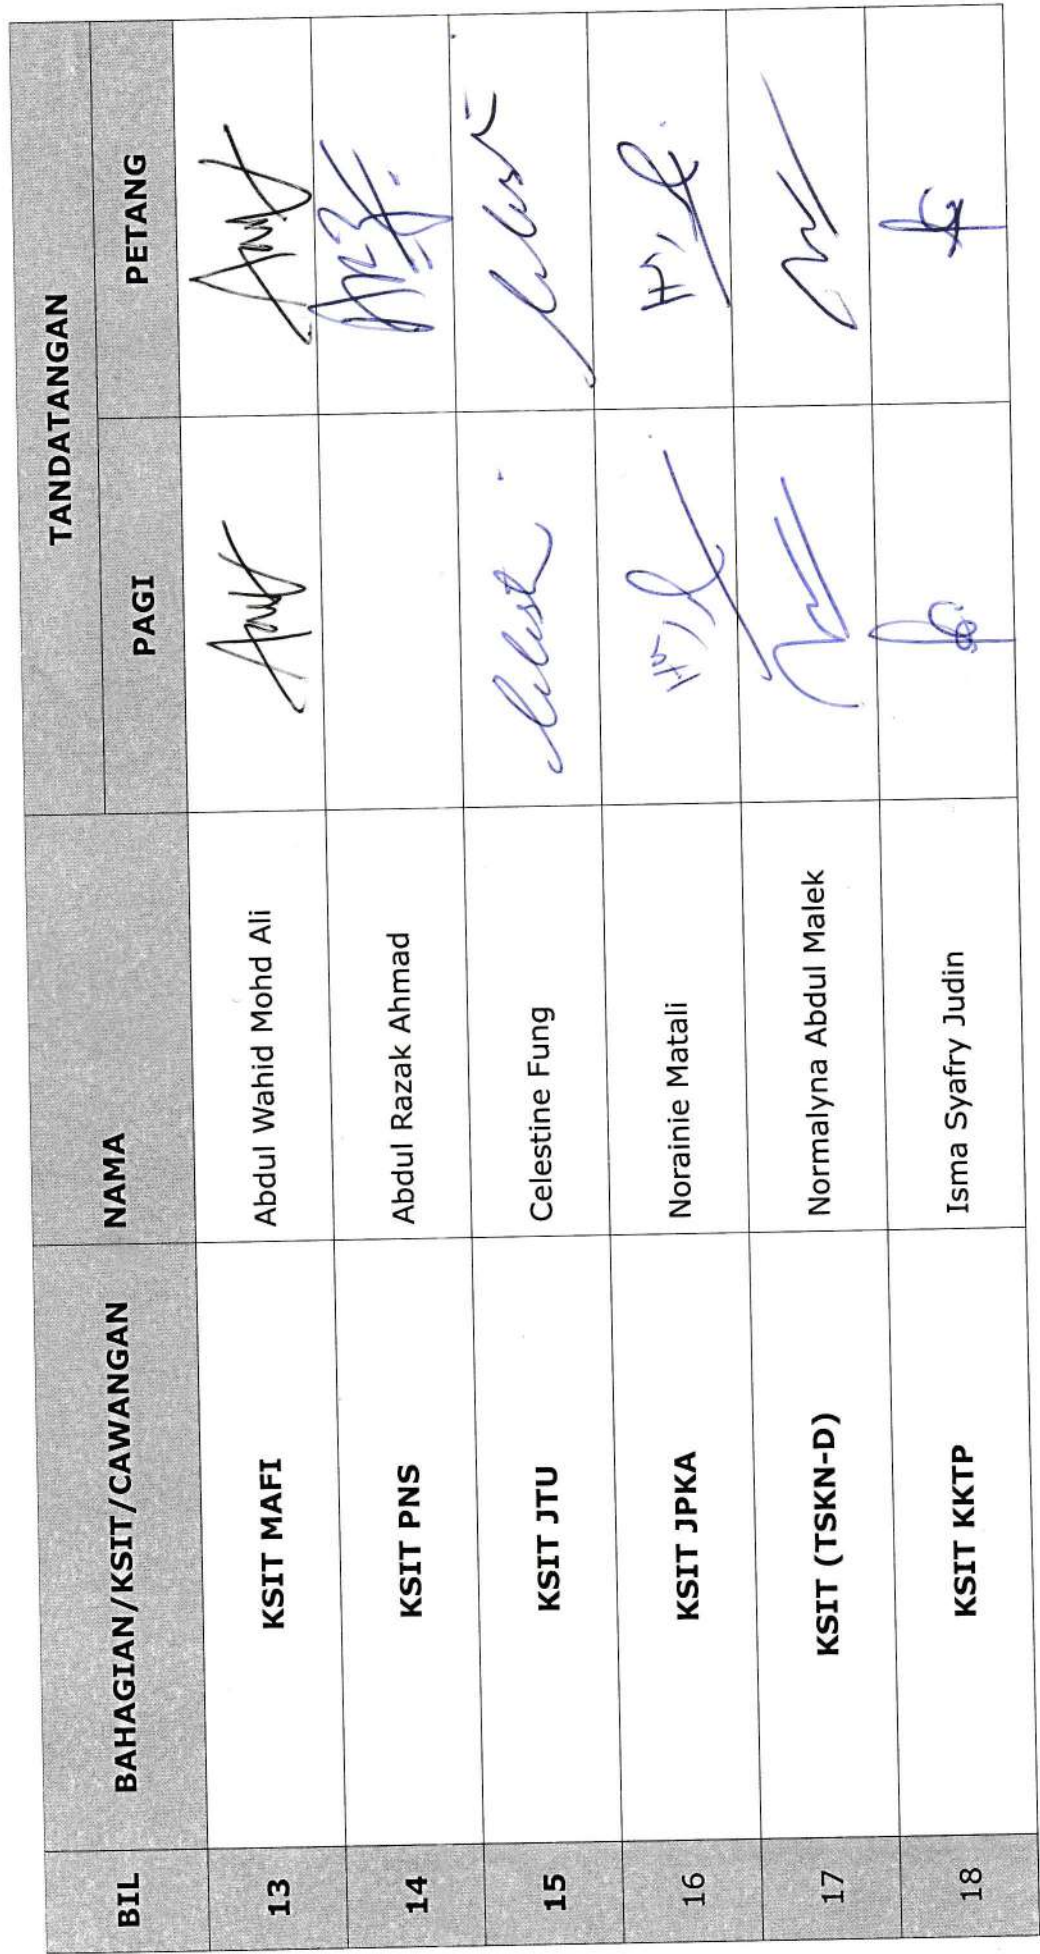 BIL BAHAGIAN/KSIT/CAWANGAN NAMA TANDATANGAN
PAGI PETANG
13 KSIT MAFI Abdul Wahid Mohd Ali
14 KSIT PNS Abdul Razak Ahmad
15 KSIT JTU Celestine Fung
16 KSIT JPKA Norainie Matali
17 KSIT (TSKN-D) Normalyna Abdul Malek
18 KSIT KKTP Isma Syafry Judin